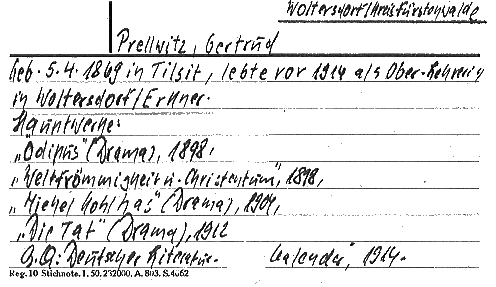 Woltersdorf/Kreis Fürstenwalde
Prellwitz, Gertrud
Geb. 5.4.1869 in Tilsit, lebte vor 1914 als Ober-Lehrerin
in Woltersdorf/Erkner.
Hauptwerke:
„Ödipus" (Drama), 1898,
„Weltfrömmigkeit u. Christentum", 1898,
„Michel Kohlhas" (Drama), 1904,
„Die Tat" (Drama), 1912
Q.Q: Deutscher Literatur- Kalender, 1914.
Reg. 10 Stichnote. I. 50. 232000. A. 803. S. 4662